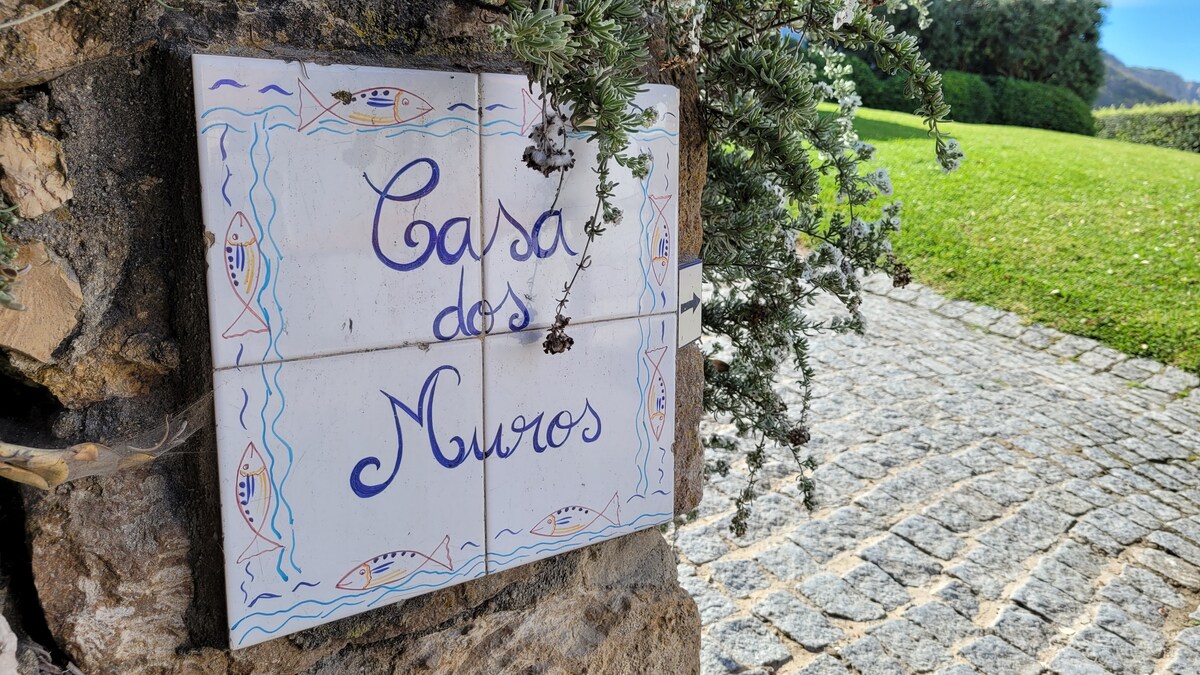 Casa
dos
Muros